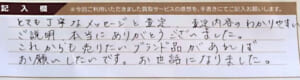 記入欄
※今回ご利用いただきました買取サービスの感想を、手書きにてご記入お願いします。
とても丁寧なメッセージと査定、査定内容のわかりやすい
ご説明、本当にありがとうございました。
これからも売りたいブランド品があれば
お願いしたいです。お世話になりました。